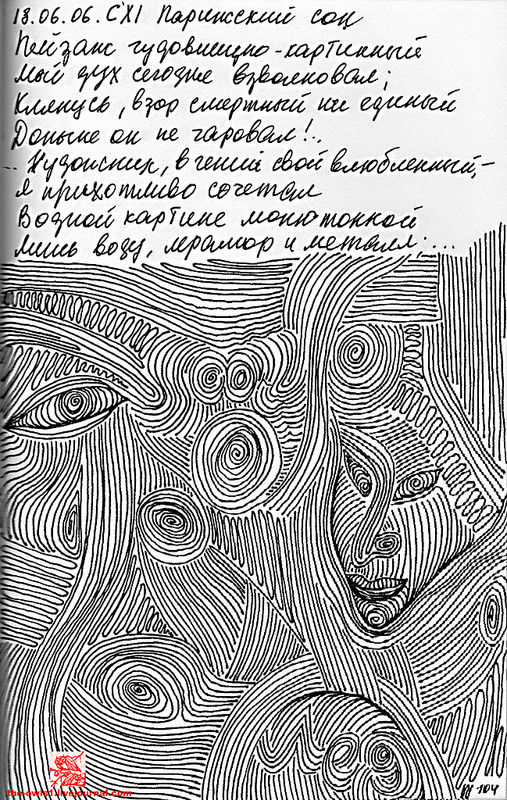 13.06.06. CXI Парижский сон
Пейзаж чудовищно-картинный
Мой дух сегодня взволновал;
Клянусь, взор смертный ни единый
Доныне он не чаровал!..
Художник, в гений свой влюбленный,–
Я прихотливо сочетал
В одной картине монотонной
Лишь воду, мрамор и металл;...
the-owls1.livejournal.com
104